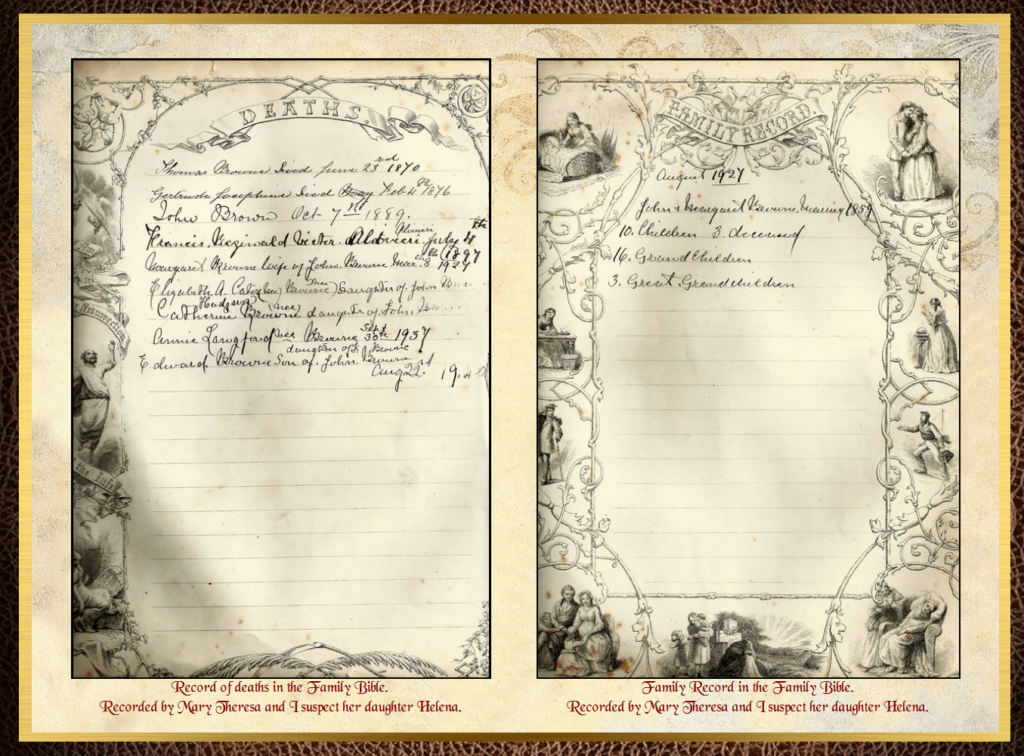 DEATHS
Thomas Browne Died June 23rd 1870
Gertrude Josephine Died May Feb 11th 1876
John Brown Oct 7th 1889.
Francis Reginald Victor Olivieri July 4th
Olivieri
1897
Margaret Browne wife of John Browne Mar. 8th 1924
Elizabeth A. (nee Browne) Daughter of John
Hudson (nee
Catherine Browne daughter of John
Annie Langford nee Browne Sept 30th 1937
daughter of J Browne
Edward Browne Son of John Browne
Aug 22nd 19
the
Resurrection
the life
FAMILY RECORD.
August 1927
John & Margaret Browne. Married 1859
10. Children 3. deceased
16. Grand Children
3. Great. Grandchildren
Record of deaths in the Family Bible.
Recorded by Mary Theresa and I suspect her daughter Helena.
Family Record in the Family Bible.
Recorded by Mary Theresa and I suspect her daughter Helena.